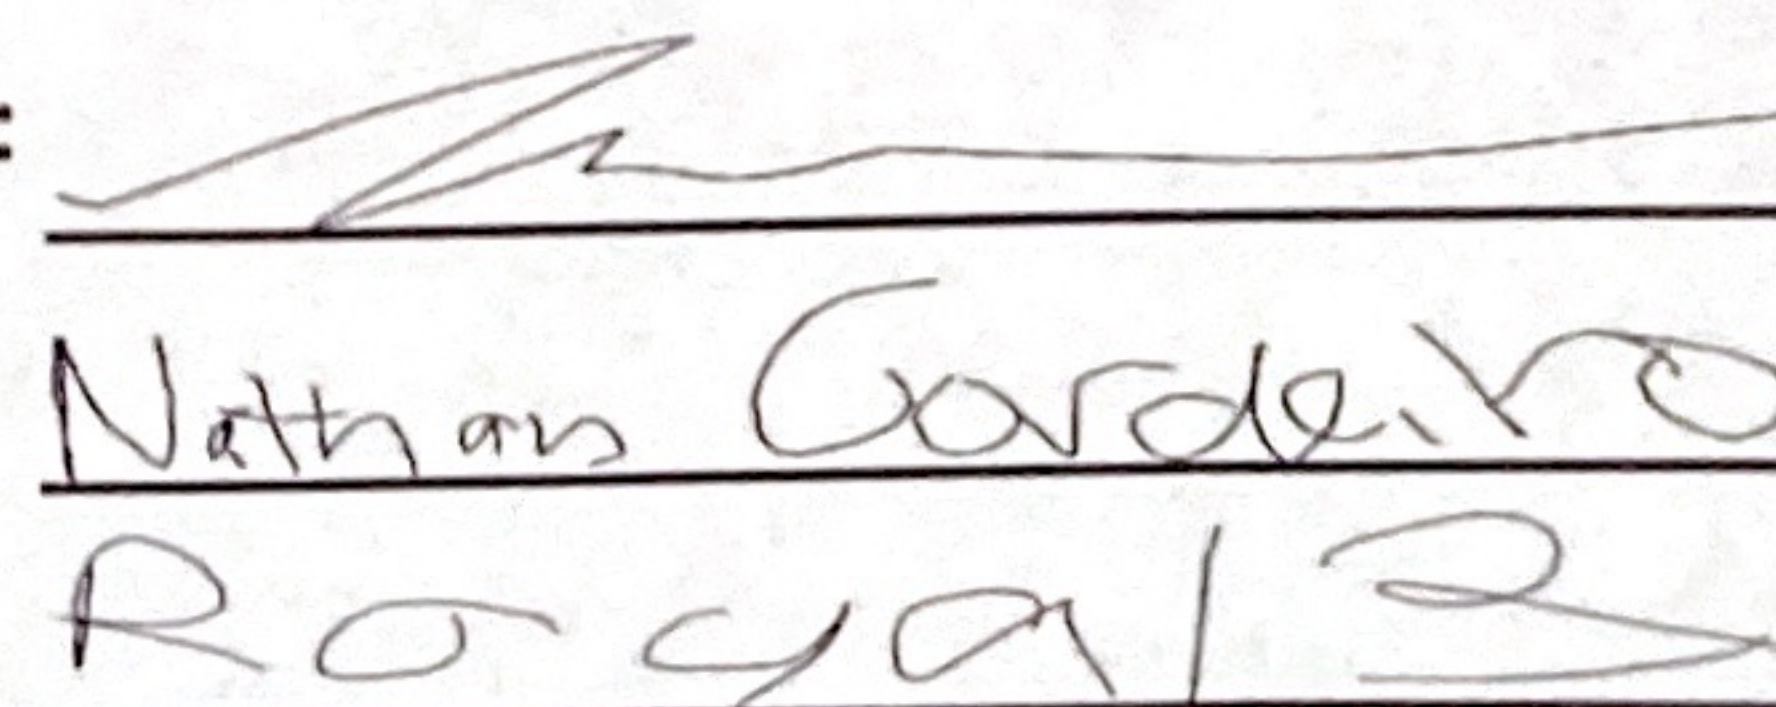 :
Nathan Cordeiro
Royal B